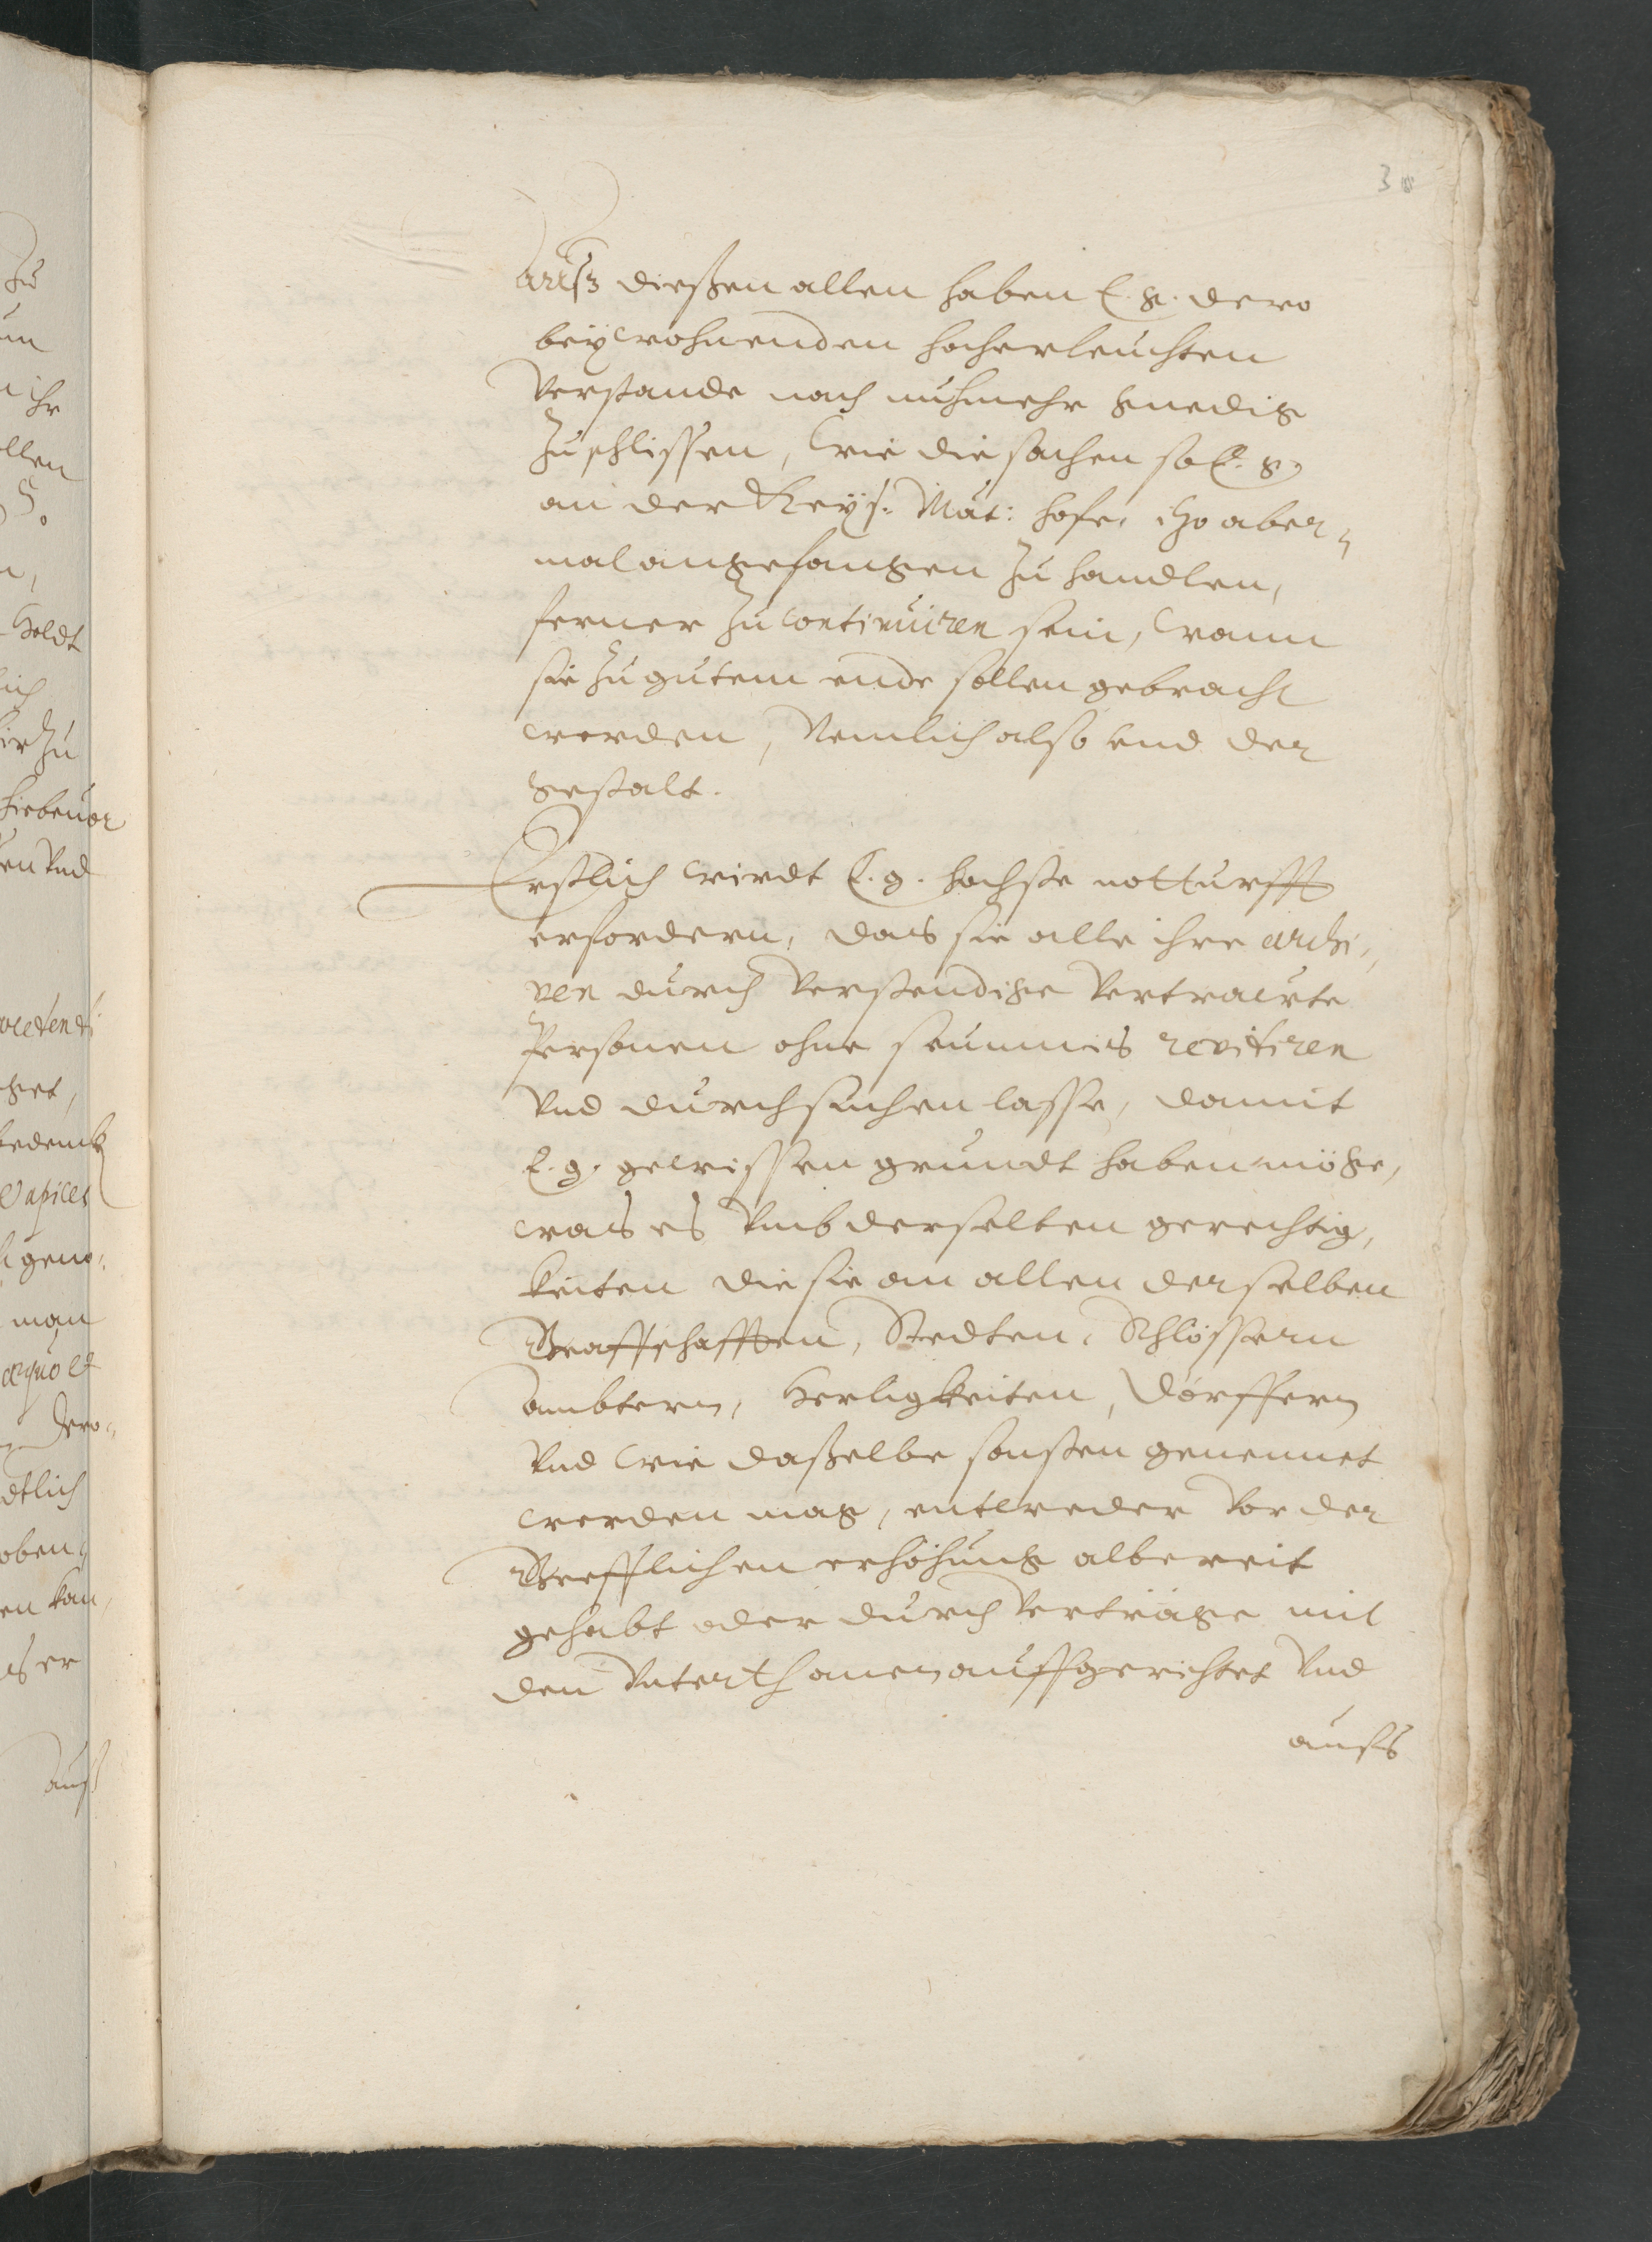 3
Auß dießen allen haben E. g. dero
beÿwohnenden hocherleuchten
Verstande nach nuhmehr gnedig
zuschlissen, Wie die sachen so E. g.
an der Keÿs: Maÿt: hofe, itzo aber„
mal angefangen zu handlen,
ferner zu continuiren sein, Wann
sie zu gutem ende sollen gebracht
werden, Nemlich also vnd der
gestalt.
Erstlich wirdt E. g. hochste notturfft
erfordern, das sie alle ihre archi„
ven durch Verstendige Vertrawte
Personen ohne seumnis revitiren
Vnd durchsuchen lasse, damit
E. g. gewissen grundt haben möge,
was es Vmb derselben gerechtig,
keiten die sie an allen derselben
Graffschafften, Stedten, Schlössern
ambtern, Herligkeiten, Dörffern
Vnd Wie daßelbe sonsten genennet
werden mag, entweder Vor der
Grefflichen erhöhung albereit
gehabt oder durch Verträge mit
den Vnterthanen auffgerichtet Vnd
aufs
zu
ihr
llen
Heldt
lich
hiebeuor
en Vnd
get,
Vapices
man
æquo et
dero„
dtlich
oben„
en kan,
er
auß